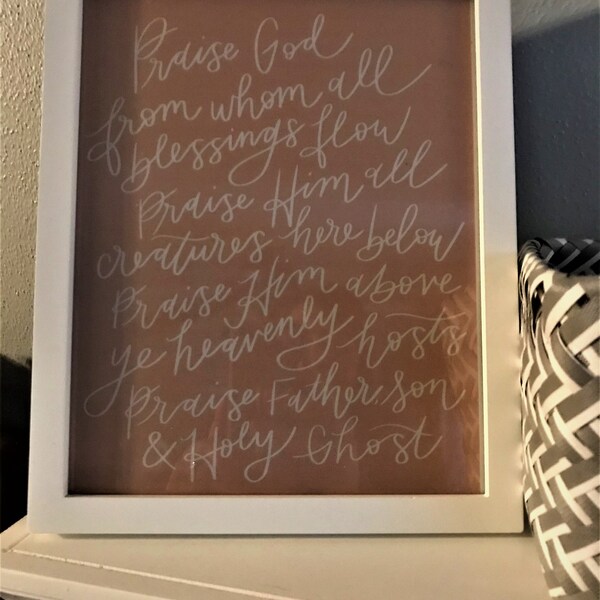 Praise God
from whom all
blessings flow
Praise Him all
creatures here below
Praise Him above
ye heavenly hosts
Praise Father, Son
& Holy Ghost